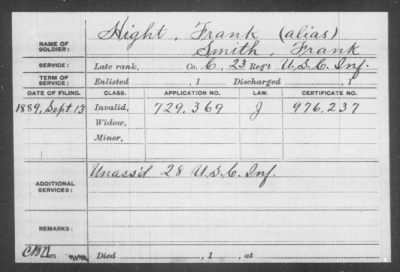 Hight, Frank (alias)
NAME OF SOLDIER: Smith, Frank
SERVICE: Late rank, Co. C, 23 Reg't U.S.C. Inf.
TERM OF SERVICE: Enlisted , 1 Discharged , 1
DATE OF FILING. CLASS. APPLICATION NO. LAW. CERTIFICATE NO.
1889, Sept 13 Invalid, 729,369 J 976,237
Widow,
Minor,
ADDITIONAL SERVICES: Unass'd 28 U.S.C. Inf.
REMARKS:
Died , 1 , at